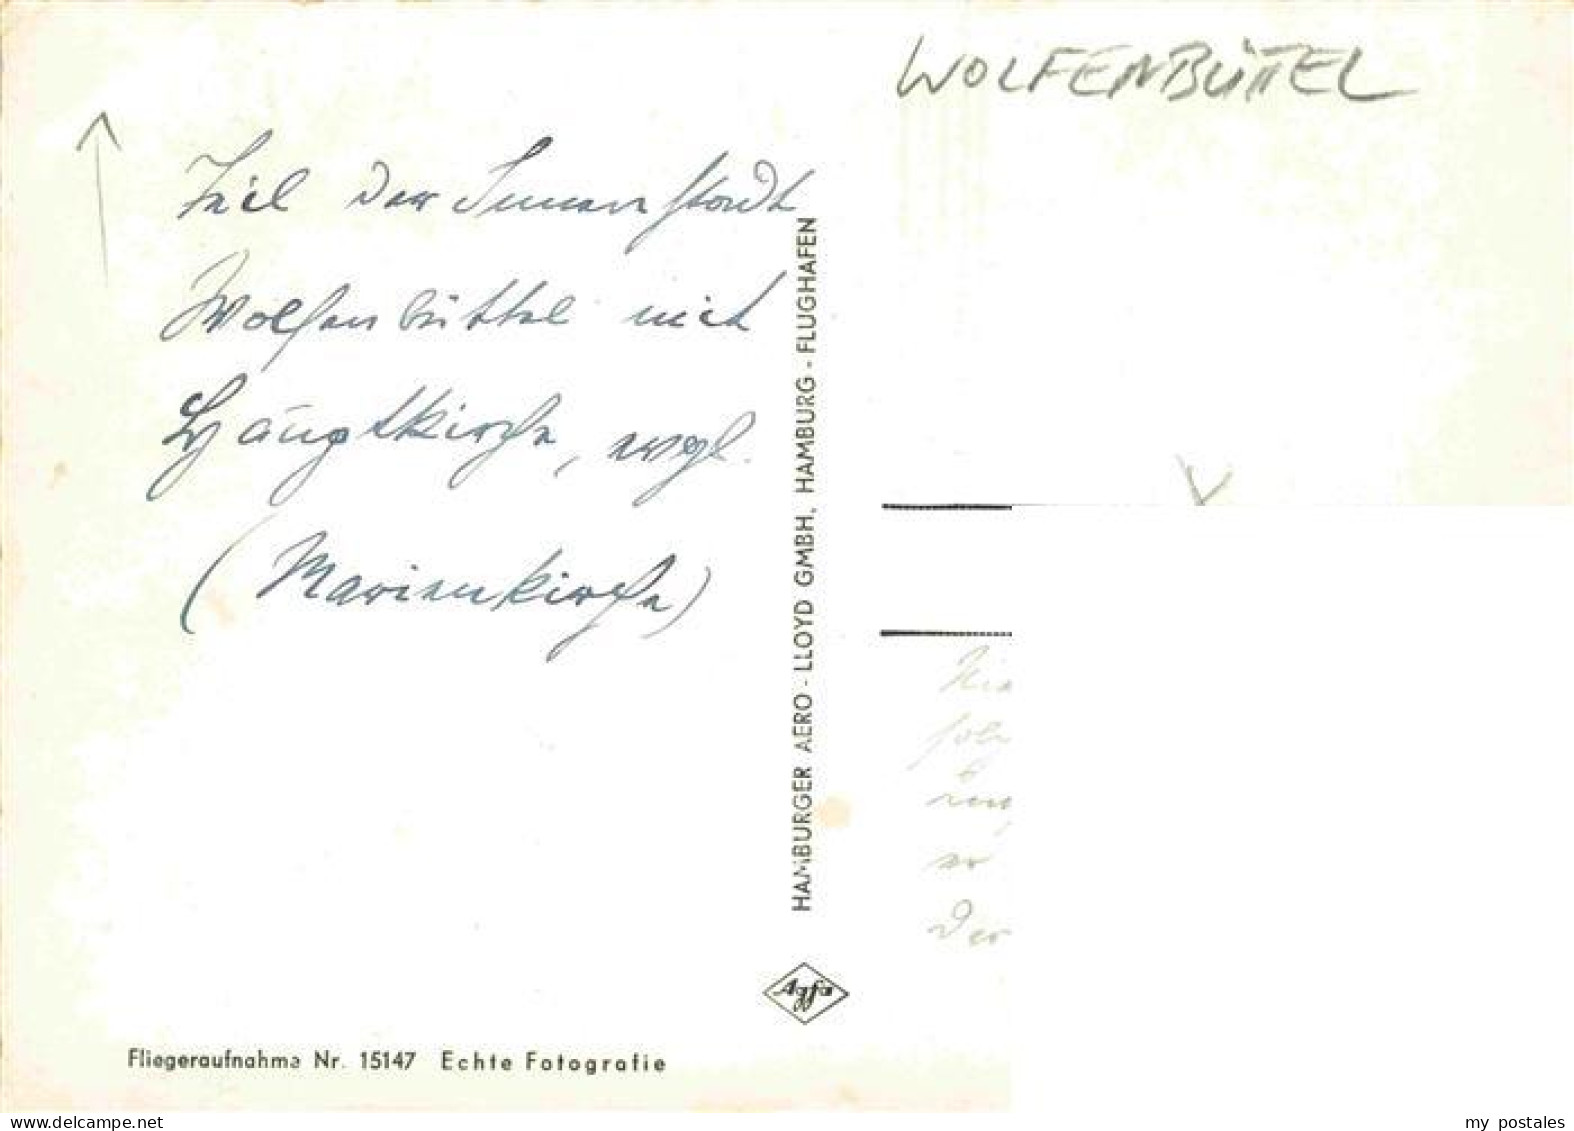 WOLFENBÜTTEL
Teil der Innenstadt
Wolfenbüttel mit
Hauptkirche, evgl.
(Marienkirche)
HAMBURGER AERO - LLOYD GMBH, HAMBURG - FLUGHAFEN
der
Agfa
Fliegeraufnahme Nr. 15147 Echte Fotografie
my postales